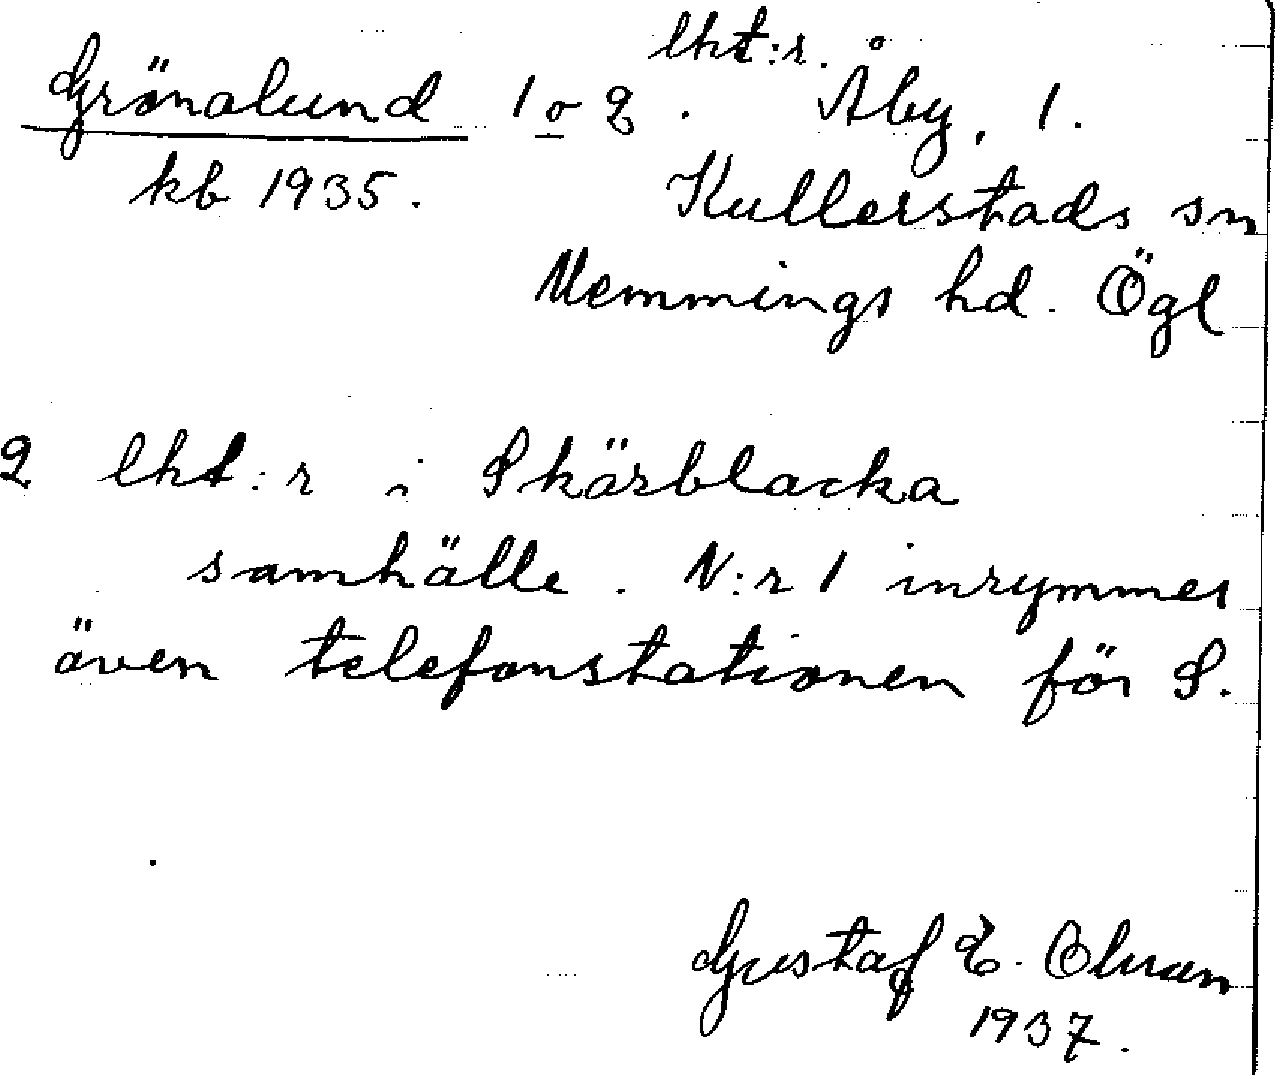 Grönalund 1 o 2. lht:r. Åby, 1.
kb 1935. Kullerstads sn
Memmings hd. Ögl
2 lht:r i Skärblacka
samhälle. N:r 1 inrymmer
även telefonstationen för S.
Gustaf E. Olsson
1937.